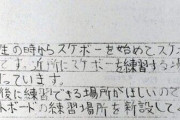 生の時からスケボーを始めてスケ
です。近所にスケボーを練習する場
っています。
後に練習できる場所がほしいので
ボードの練習場所を新設してく